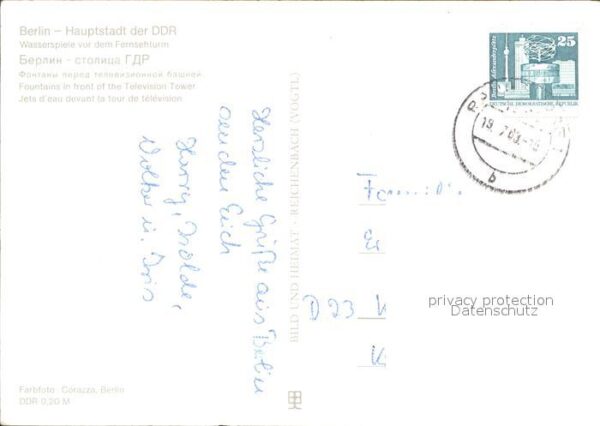 Berlin – Hauptstadt der DDR
Wasserspiele vor dem Fernsehturm
Берлин - столица ГДР
Фонтаны перед телевизионной башней
Fountains in front of the Television Tower
Jets d'eau devant la tour de télévision
Herzliche Grüße aus Berlin
senden Euch
Harry, Isolde,
Volker u. Iris
BILD UND HEIMAT · REICHENBACH (VOGTL)
25
DEUTSCHE DEMOKRATISCHE REPUBLIK
b
D 23
privacy protection
Datenschutz
Farbfoto: Corazza, Berlin
DDR 0,20 M